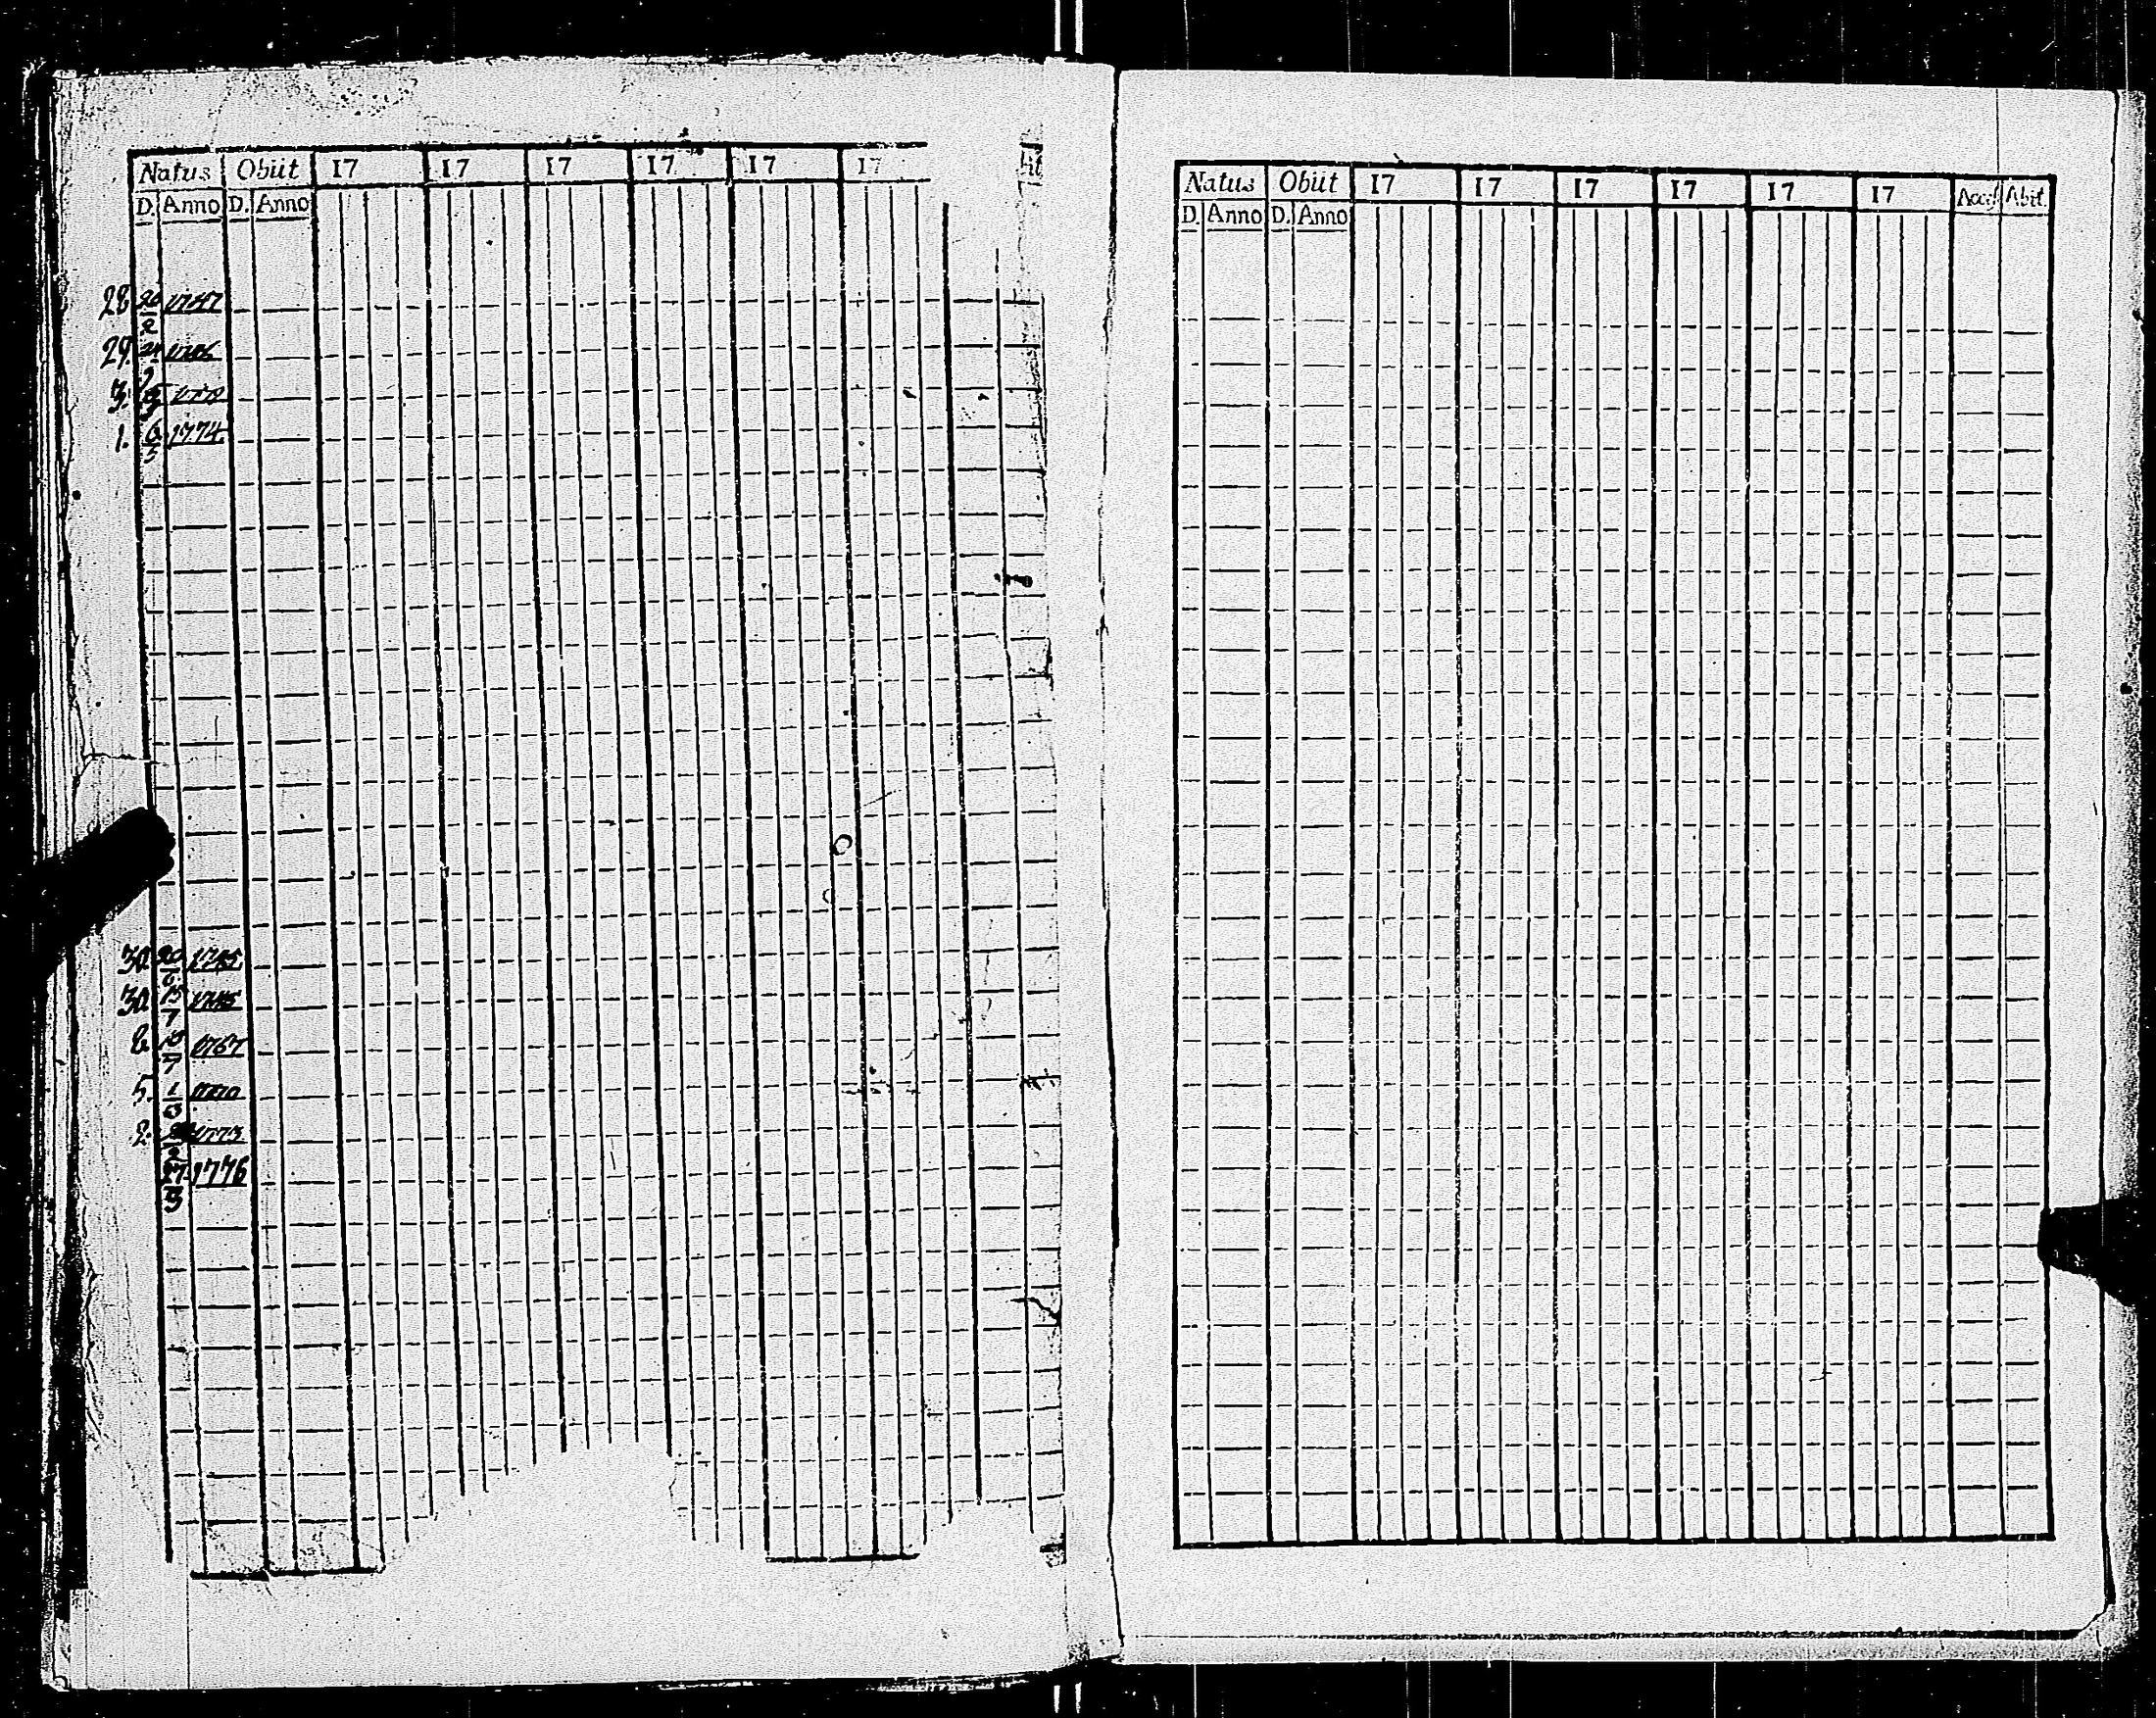 Natus Obiit 17 17 17 17 17 17
D. Anno D. Anno
28 26/2 1747
29
3.
1. 6/5 1774
30 20/6 1745
30 15/7 1745
8 15/7 1767
5. 1/3 1770
2. 1773
27/3 1776
Natus Obiit 17 17 17 17 17 17 Acces. Abit.
D. Anno D. Anno